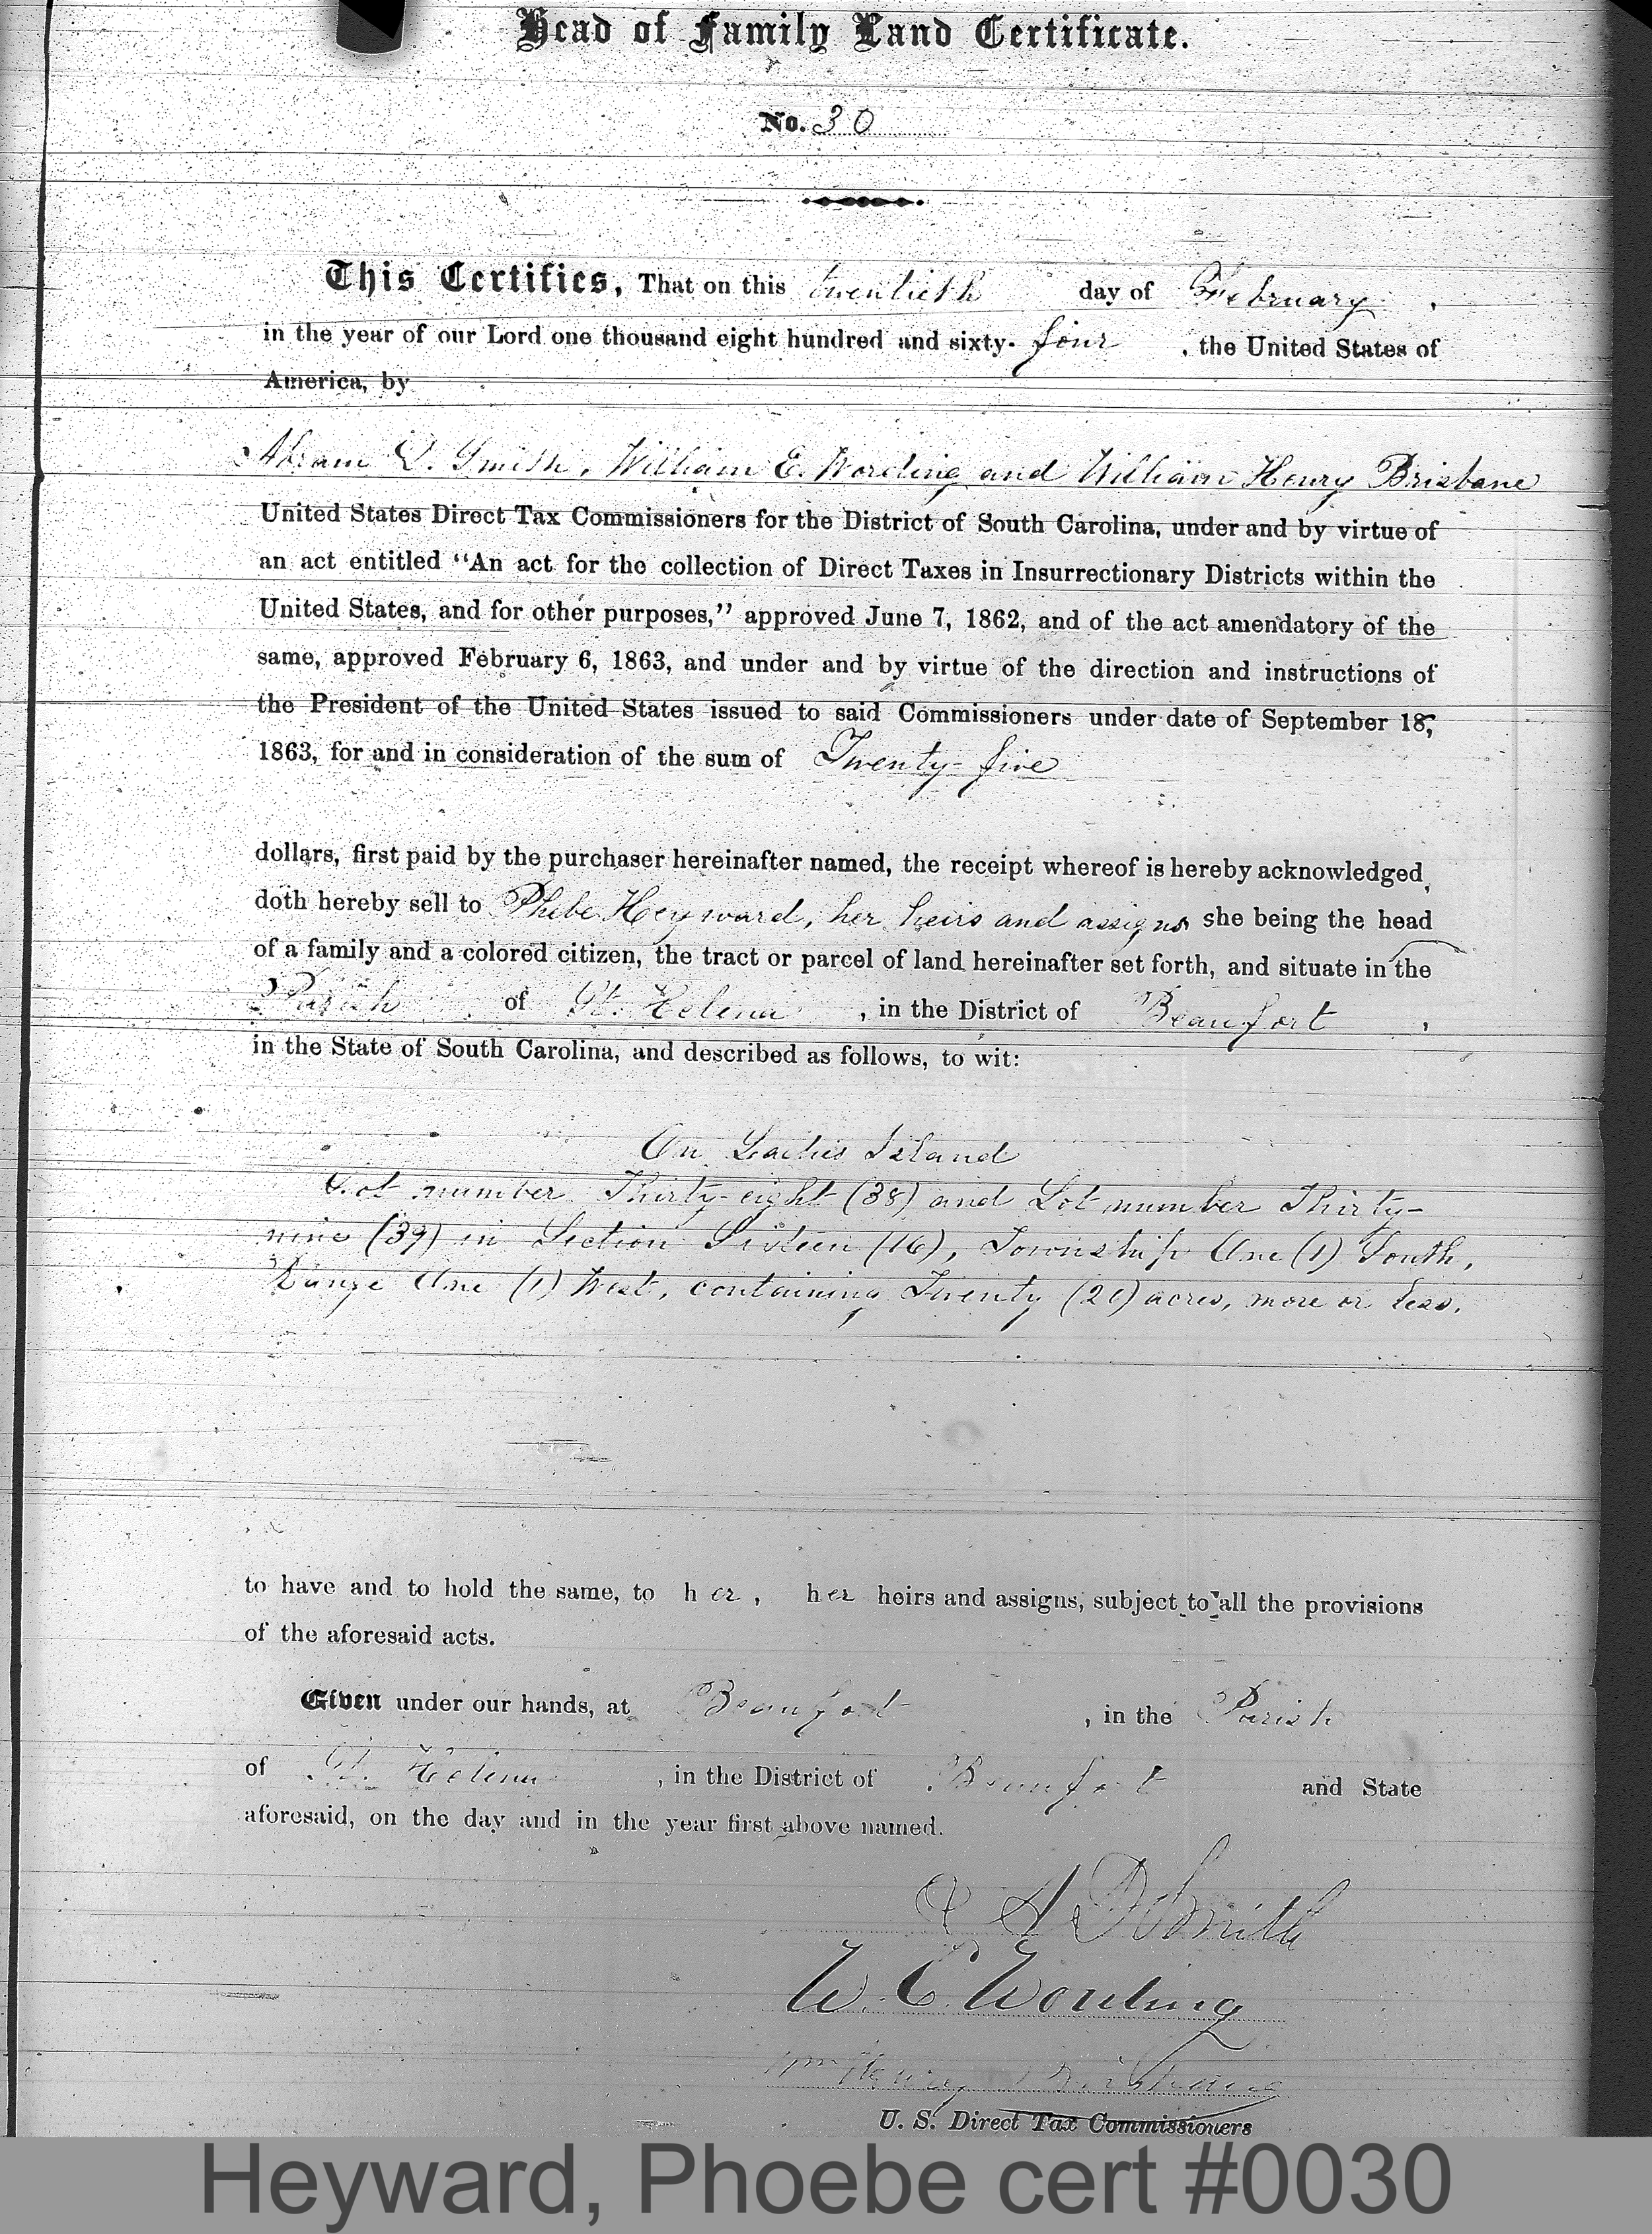 Head of Family Land Certificate.
No. 30
This Certifies, That on this twentieth day of February,
in the year of our Lord one thousand eight hundred and sixty-four, the United States of
America, by
Abram D. Smith, William E. Wording and William Henry Brisbane
United States Direct Tax Commissioners for the District of South Carolina, under and by virtue of
an act entitled "An act for the collection of Direct Taxes in Insurrectionary Districts within the
United States, and for other purposes," approved June 7, 1862, and of the act amendatory of the
same, approved February 6, 1863, and under and by virtue of the direction and instructions of
the President of the United States issued to said Commissioners under date of September 18,
1863, for and in consideration of the sum of Twenty-five
dollars, first paid by the purchaser hereinafter named, the receipt whereof is hereby acknowledged,
doth hereby sell to Phebe Heyward, her heirs and assigns she being the head
of a family and a colored citizen, the tract or parcel of land hereinafter set forth, and situate in the
Parish of St. Helena, in the District of Beaufort,
in the State of South Carolina, and described as follows, to wit:
On Ladies Island
Lot number Thirty-eight (38) and Lot number Thirty-
nine (39) in Section Sixteen (16), Township One (1) South,
Range One (1) West, containing Twenty (20) acres, more or less.
to have and to hold the same, to her, her heirs and assigns, subject to all the provisions
of the aforesaid acts.
Given under our hands, at Beaufort, in the Parish
of St. Helena, in the District of Beaufort and State
aforesaid, on the day and in the year first above named.
A D Smith
W. E. Wording
Wm Henry Brisbane
U. S. Direct Tax Commissioners
Heyward, Phoebe cert #0030